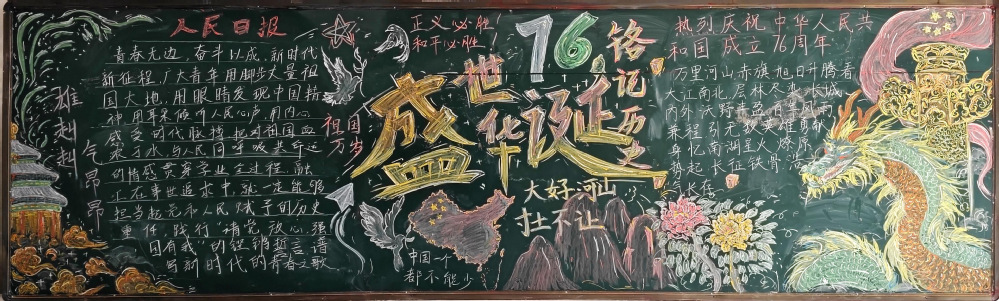 人民日报
青春无边,奋斗以成,新时代
新征程,广大青年用脚步丈量祖
国大地,用眼睛发现中国精
神,用耳朵倾听人民心声,用内心
感受时代脉搏,把对祖国血
浓于水、与人民同呼吸共命运
的情感贯穿学业全过程、融
汇在事业追求中,就一定能够
担当起党和人民赋予的历史
重任,践行"请党放心,强
国有我"的铿锵誓言,谱
写新时代的青春之歌
雄赳赳
气昂昂
祖国
万岁
正义必胜!
和平必胜!
盛世华诞
76
铭记历史
中国一个
都不能少
大好河山
寸土不让
热烈庆祝中华人民共
和国成立76周年
万里河山赤旗旭日升腾看
大江南北层林尽染长城
内外沃野
征程引无数英雄
身忆南湖星火燎原
势起长征铁骨
气长存